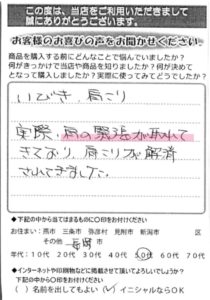 この度は、当店をご利用いただきまして
誠にありがとうございます。
お客様のお喜びの声をお聞かせください。
商品を購入する前にどんなことで悩んでいましたか?
何がきっかけで当店や商品を知りましたか?何が決めて
となって購入しましたか?実際に使ってみてどうでしたか?
いびき、肩こり
実際、肩の緊張が取れて
きており、肩こりが解消
されてきました。
◆下記の中から当てはまるものに〇印をお付けください
お住まい:燕市 三条市 弥彦村 見附市 新潟市 区
その他 長岡市
年代:10代 20代 30代 40代 50代 60代 70代
◆インターネットや印刷物などに掲載させて頂いてよろしいでしょうか?
下記の中から〇印をお付けください
( )名前を出してもよい (✓)イニシャルならOK